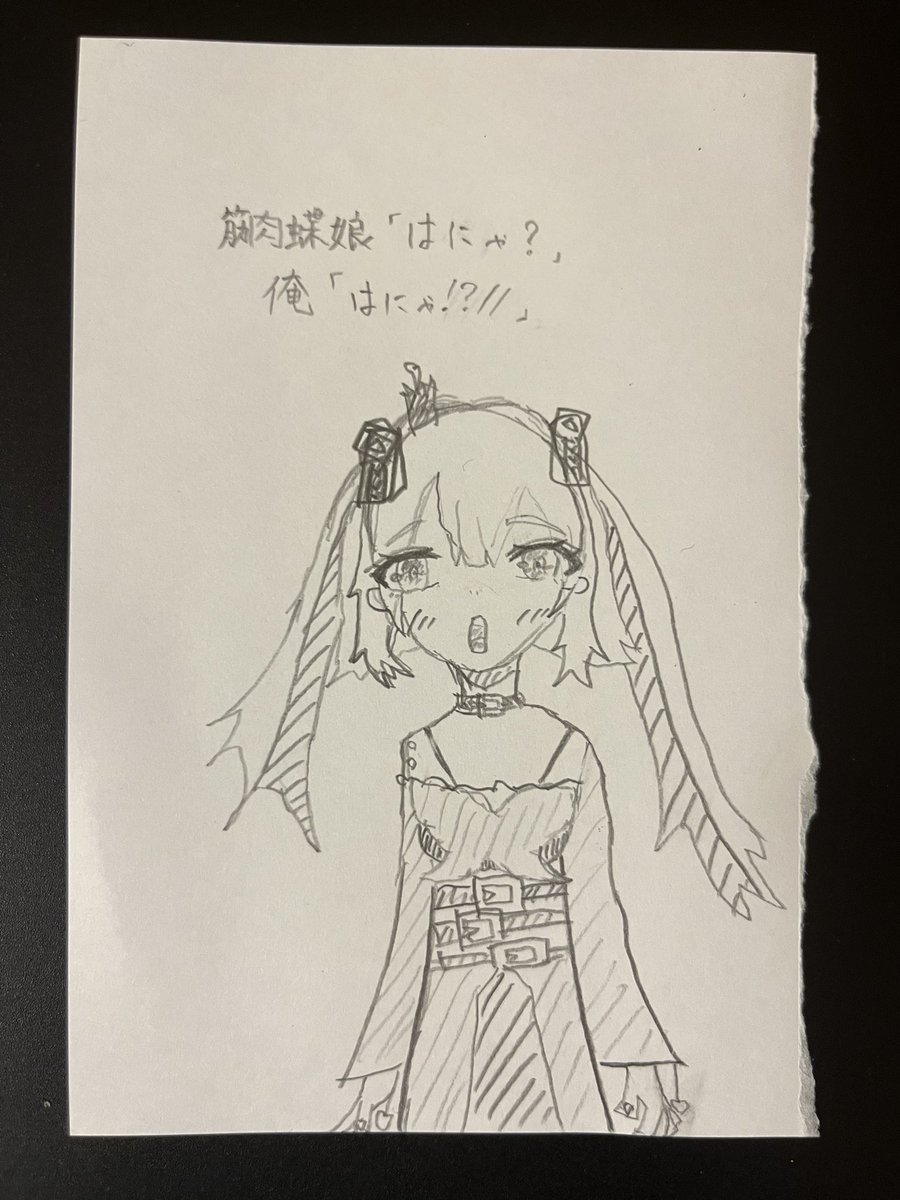 筋肉蝶娘「はにゃ?」
俺「はにゃ!?//」